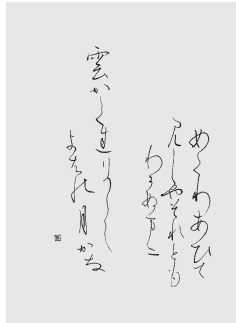 めくりあひて
見しやそれとも
わかぬまに
雲かくれにし
よはの月かな